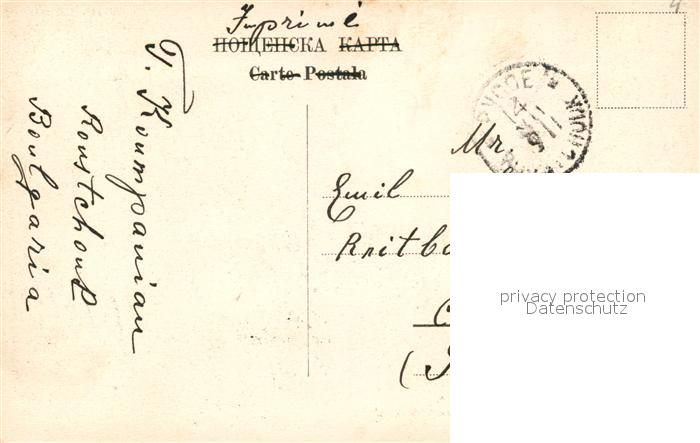 Imprimé
ПОЩЕНСКА КАРТА
Carte Postala
T. Koumpanian
Roustchouk
Boulgaria
Mr.
Emil
privacy protection
Datenschutz